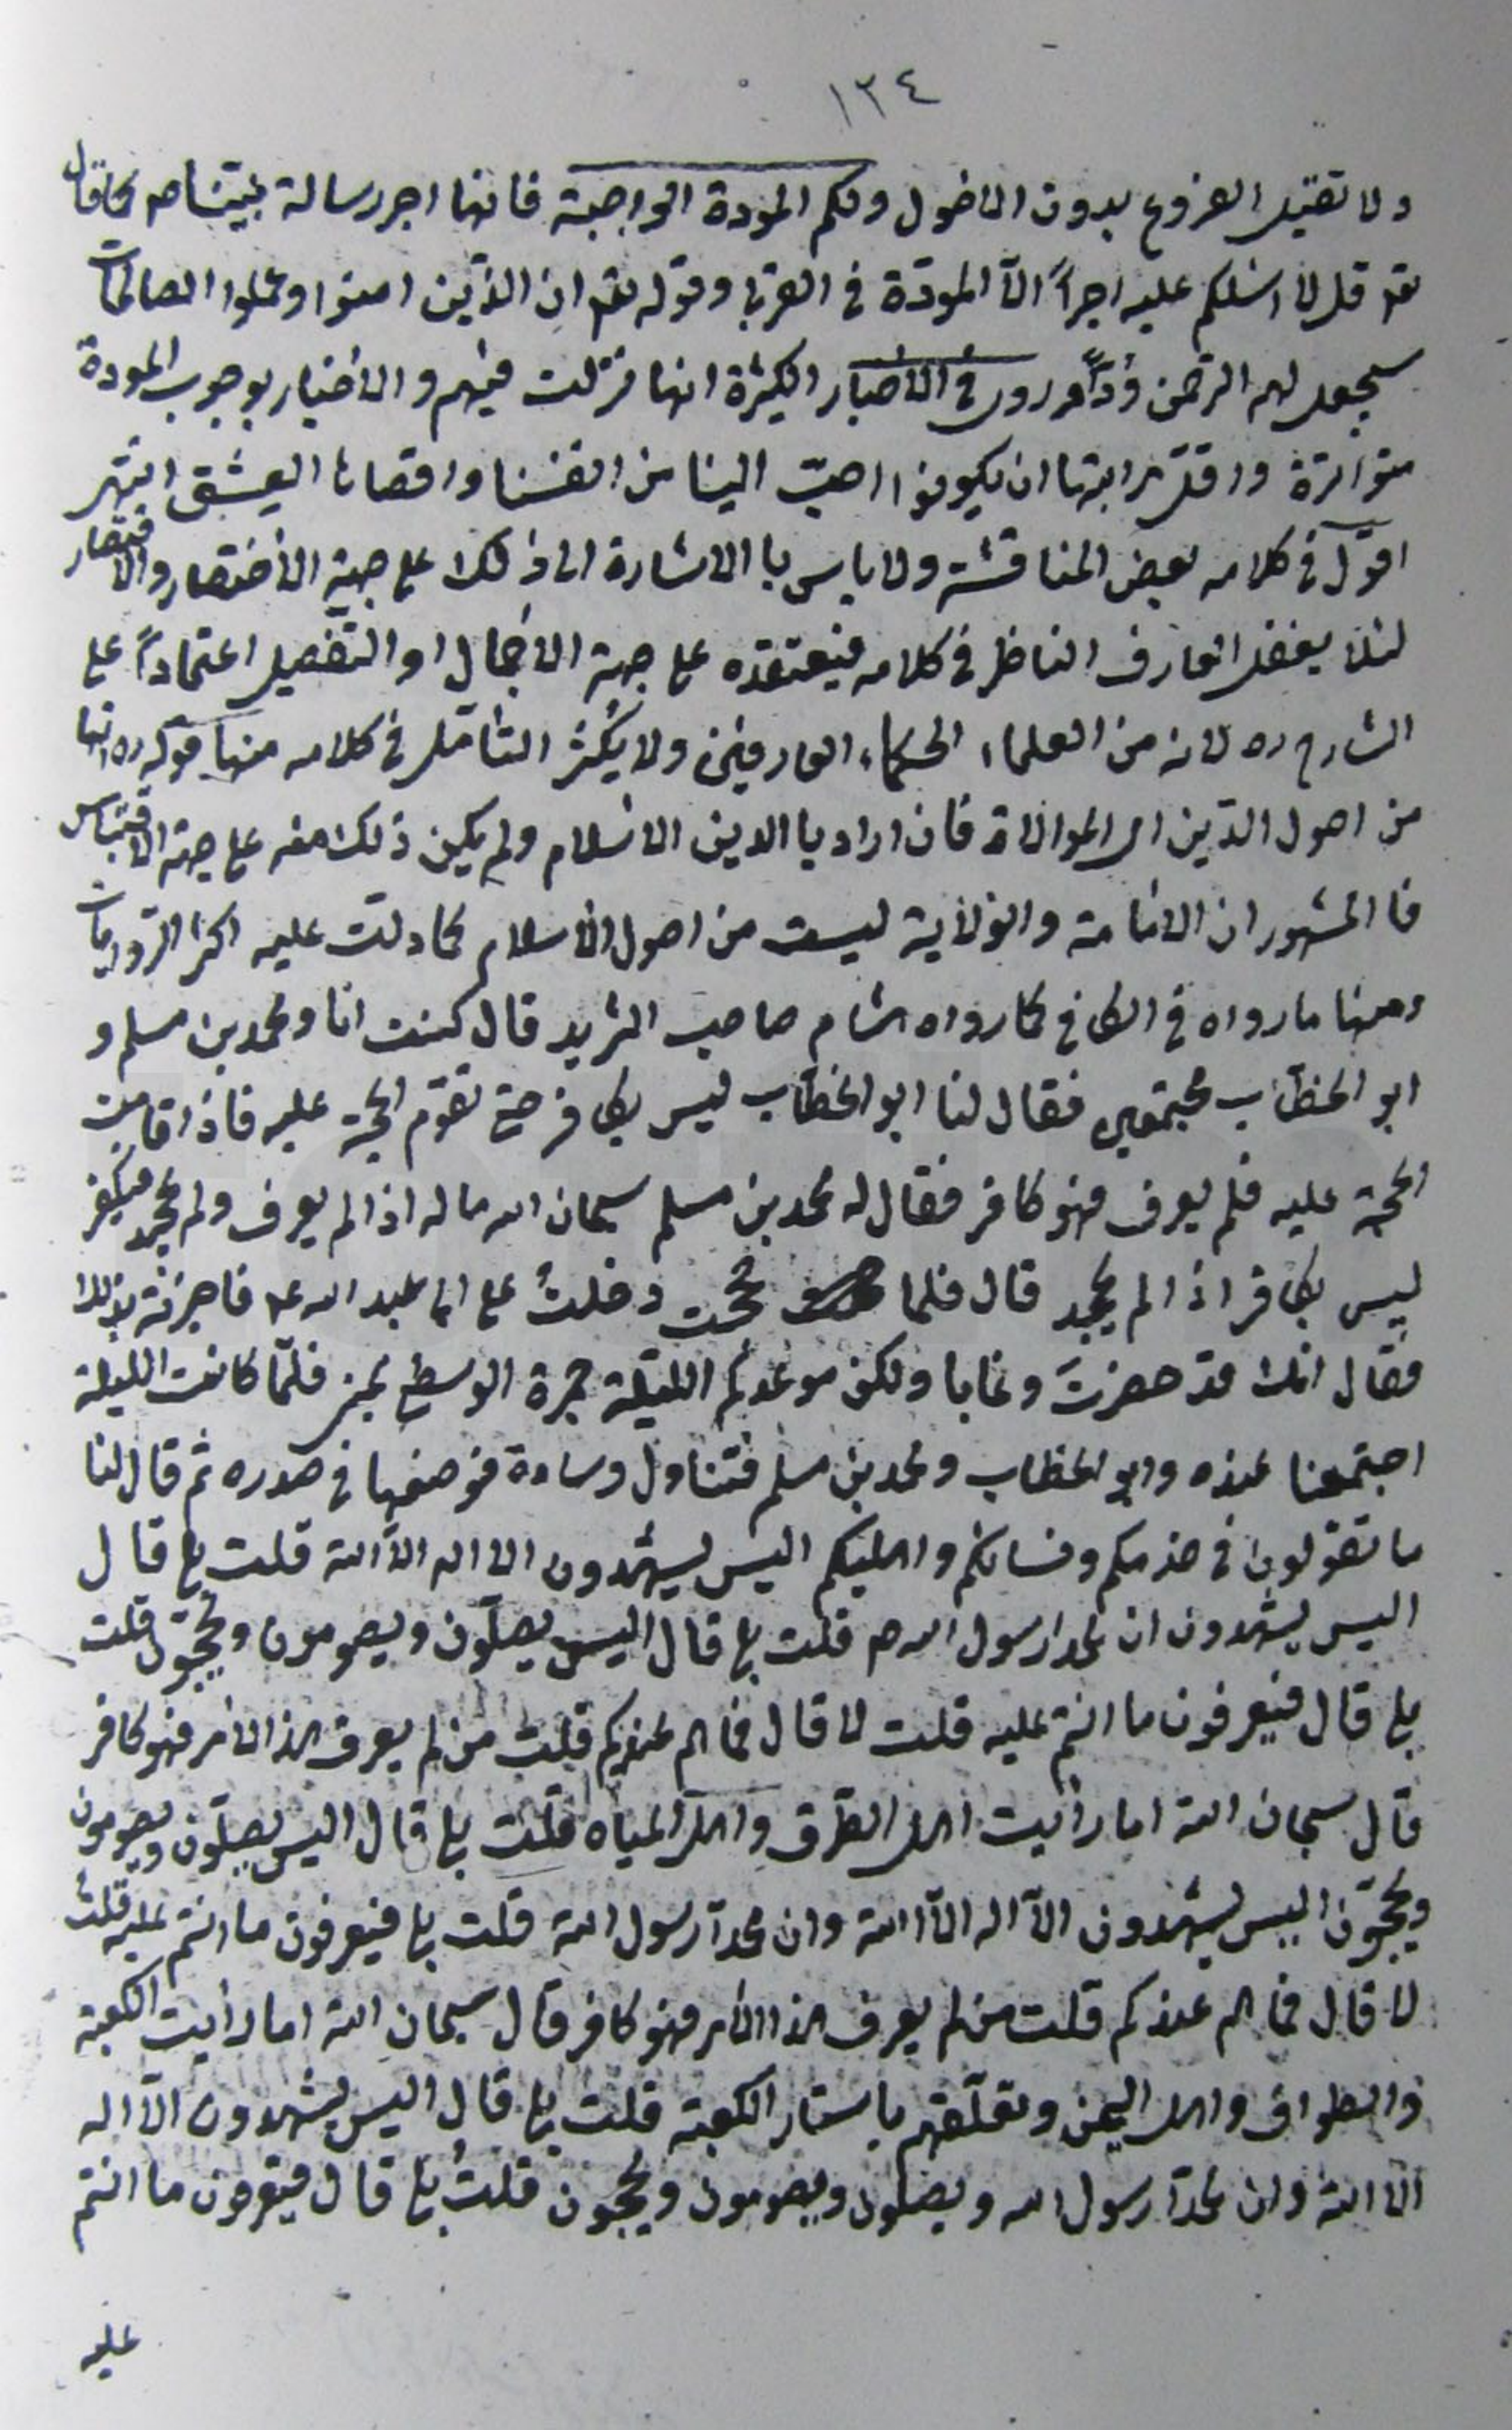 ١٣٤
ولا تقبل الفروع بدون الاصول ولكم المودة الواجبة فانها اجر رسالة نبيّنا صم كما قال
تعم قل لا اسئلكم عليه اجراً الّا المودّة فى القربى وقوله تعم ان الذّين امنوا وعملوا الصالحات
سيجعل لهم الرحمن ودّاً وروى فى الأخبار الكثيرة انها نزلت فيهم والأخبار بوجوب المودة
متواترة واقلّ مراتبها ان يكونوا احبّ الينا من انفسنا واقصاها العشق انتهى
اقول فى كلامه بعض المناقشة ولا باس با الاشارة الى ذلك على جهة الأختصار والاقتصار
لئلا يغفل العارف الناظر فى كلامه فيعتقده على جهة الأجمال او التفصيل اعتماداً على
الشارح ره لانه من العلماء الحكماء العارفين ولا يكثر التأمّل فى كلامه منها قوله ره انها
من اصول الدّين اى الموالاة فان اراد با الدين الاسلام ولم يكن ذلك منه على جهة الاقتباس
فا المشهور ان الامامة والولاية ليست من اصول الأسلام كما دلت عليه اكثر الرّوايات
ومنها ما رواه فى الكافى كما رواه هشام صاحب البريد قال كنت انا ومحمد بن مسلم و
ابو الخطّاب مجتمعين فقال لنا ابو الخطّاب ليس بكافر حتى تقوّم الحجة عليه فاذا قامت
الحجة عليه فلم يعرف فهو كافر فقال له محمد بن مسلم سبحان الله ما له اذا لم يعرف ولم يجحد فيكفر
ليس بكافر اذا لم يجحد قال فلما حججت دخلتُ على ابى عبد الله عم فاخبرته بذلك
فقال انك قد حضرتَ وغابا ولكن موعدكم الليلة جمرة الوسطى بمنى فلمّا كانت الليلة
اجتمعنا عنده وابو الخطاب ومحمد بن مسلم فتناول وسادة فوضعها فى صدره ثم قال لنا
ما تقولون فى خدمكم ونسائكم واهليكم اليس يشهدون الا اله الّا الله قلت بلى قال
اليس يشهدون ان محمدا رسول الله صم قلت بلى قال اليس يصلّون ويصومون ويحجّون قلت
بلى قال فيعرفون ما انتم عليه قلت لا قال فما هم عندكم قلت من لم يعرف هذا الأمر فهو كافر
قال سبحان الله اما رأيت اهل الطرق واهل المياه قلت بلى قال اليس يصلّون ويصومون
ويحجّون اليس يشهدون الّا اله الّا الله وان محمدآ رسول الله قلت بلى فيعرفون ما انتم عليه قلت
لا قال فما هم عندكم قلت من لم يعرف هذا الأمر فهو كافر قال سبحان الله اما رأيت الكعبة
والطواف واهل اليمن وتعلّقهم باستار الكعبة قلت بلى قال اليس يشهدون الّا اله
الا الله وان محمدآ رسول الله ويصلون ويصومون ويحجون قلتُ بلى قال فيعرفون ما انتم
عليه